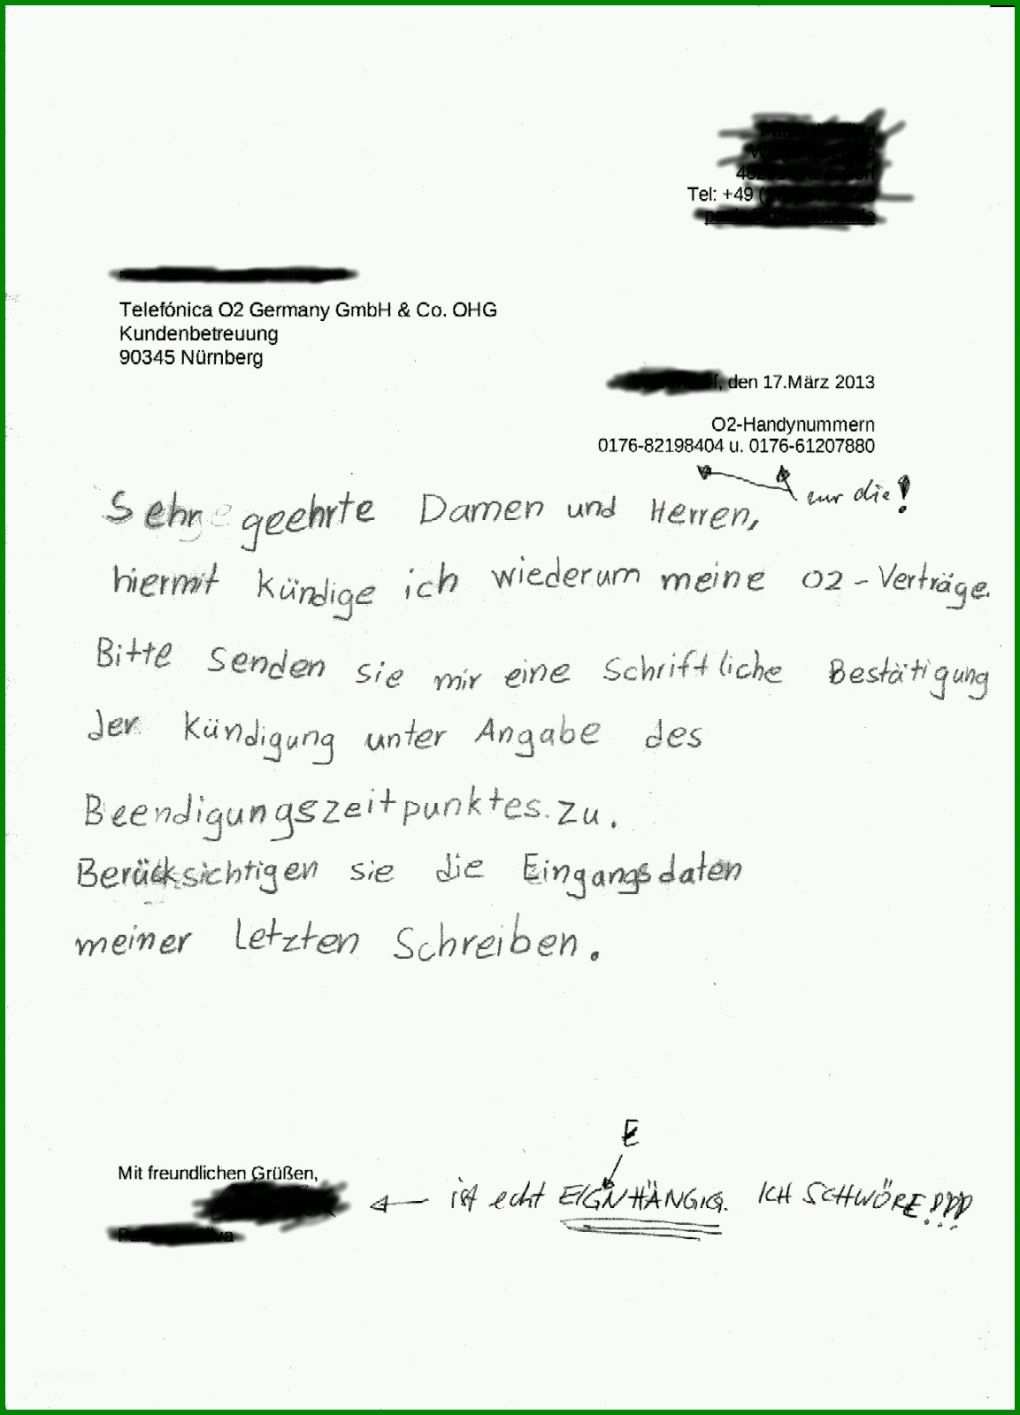 Tel: +49 (
Telefónica O2 Germany GmbH & Co. OHG
Kundenbetreuung
90345 Nürnberg
, den 17.März 2013
O2-Handynummern
0176-82198404 u. 0176-61207880
nur die!
Sehr geehrte Damen und Herren,
hiermit kündige ich wiederum meine O2-Verträge.
Bitte senden sie mir eine Schriftliche Bestätigung
der Kündigung unter Angabe des
Beendigungszeitpunktes zu.
Berücksichtigen sie die Eingangsdaten
meiner letzten Schreiben.
E
Mit freundlichen Grüßen,
ist echt EIGNHÄNGIG. ICH SCHWÖRE!!!